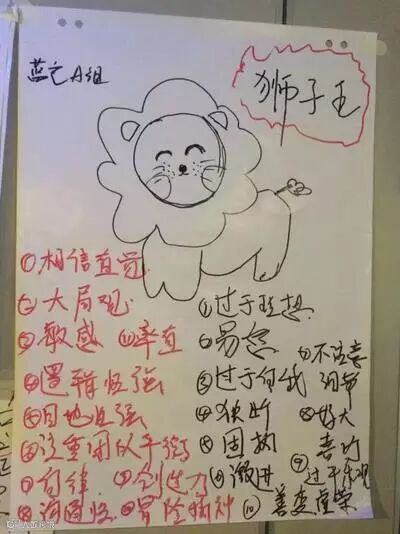 蓝色A组
狮子王
①相信直觉
②大局观
③敏感 ⑪率直
④逻辑性强
⑤目地性强
⑥注重团队平衡
⑦自律 ⑨创造力
⑧沟通性 ⑩冒险精神
①过于理想
②易怒
③过于自我
④独断
⑤固执
⑥激进
⑦不注意
细节
⑧好大
喜功
⑨过于乐观
⑩善变虚荣